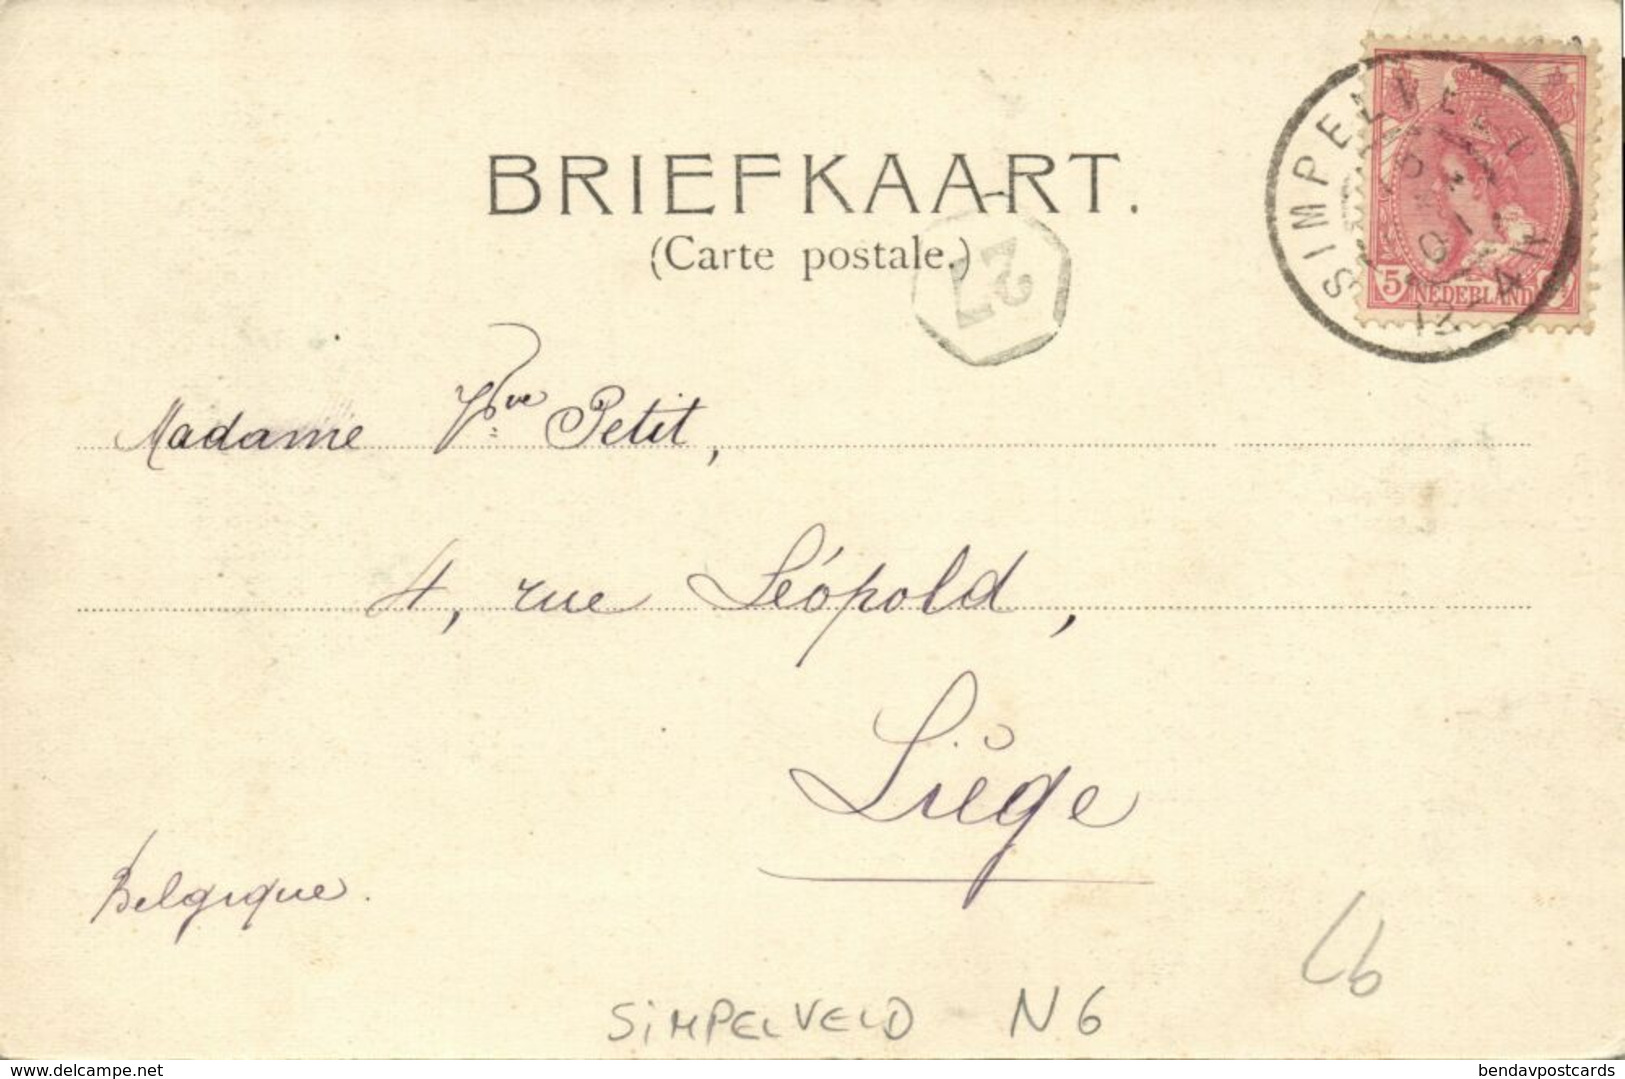 BRIEFKAART.
(Carte postale.)
SIMPELVELD
5 NEDERLAND
27
Madame Vve Petit,
4, rue Léopold,
Liége
Belgique.
SIMPELVELD N6
Lb
delcampe.net
bendavpostcards